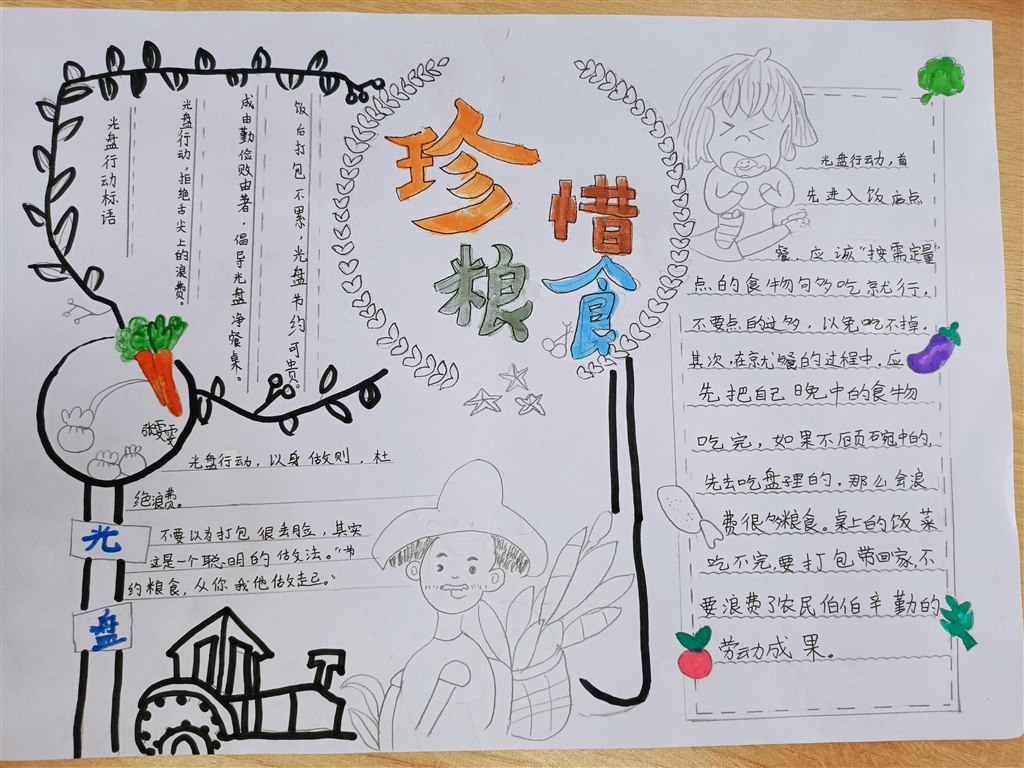 珍惜
粮食
光盘行动标语
光盘行动，拒绝舌尖上的浪费。
成由勤俭败由奢，倡导光盘净餐桌。
饭后打包不累，光盘节约可贵。
张雯雯
光盘
光盘行动，以身做则，杜
绝浪费。
不要以为打包很丢脸，其实
这是一个聪明的做法。"节
约粮食，从你我他做走己。"
光盘行动，首
先进入饭店点
餐，应该"按需定量"
点的食物句多吃就行，
不要点的过多，以免吃不掉。
其次在就餐的过程中，应
先把自己晚中的食物
吃完，如果不顾碗中的，
先去吃盘理的，那么会浪
费很多粮食。桌上的饭菜
吃不完，要打包带回家，不
要浪费了农民伯伯辛勤的
劳动成果。